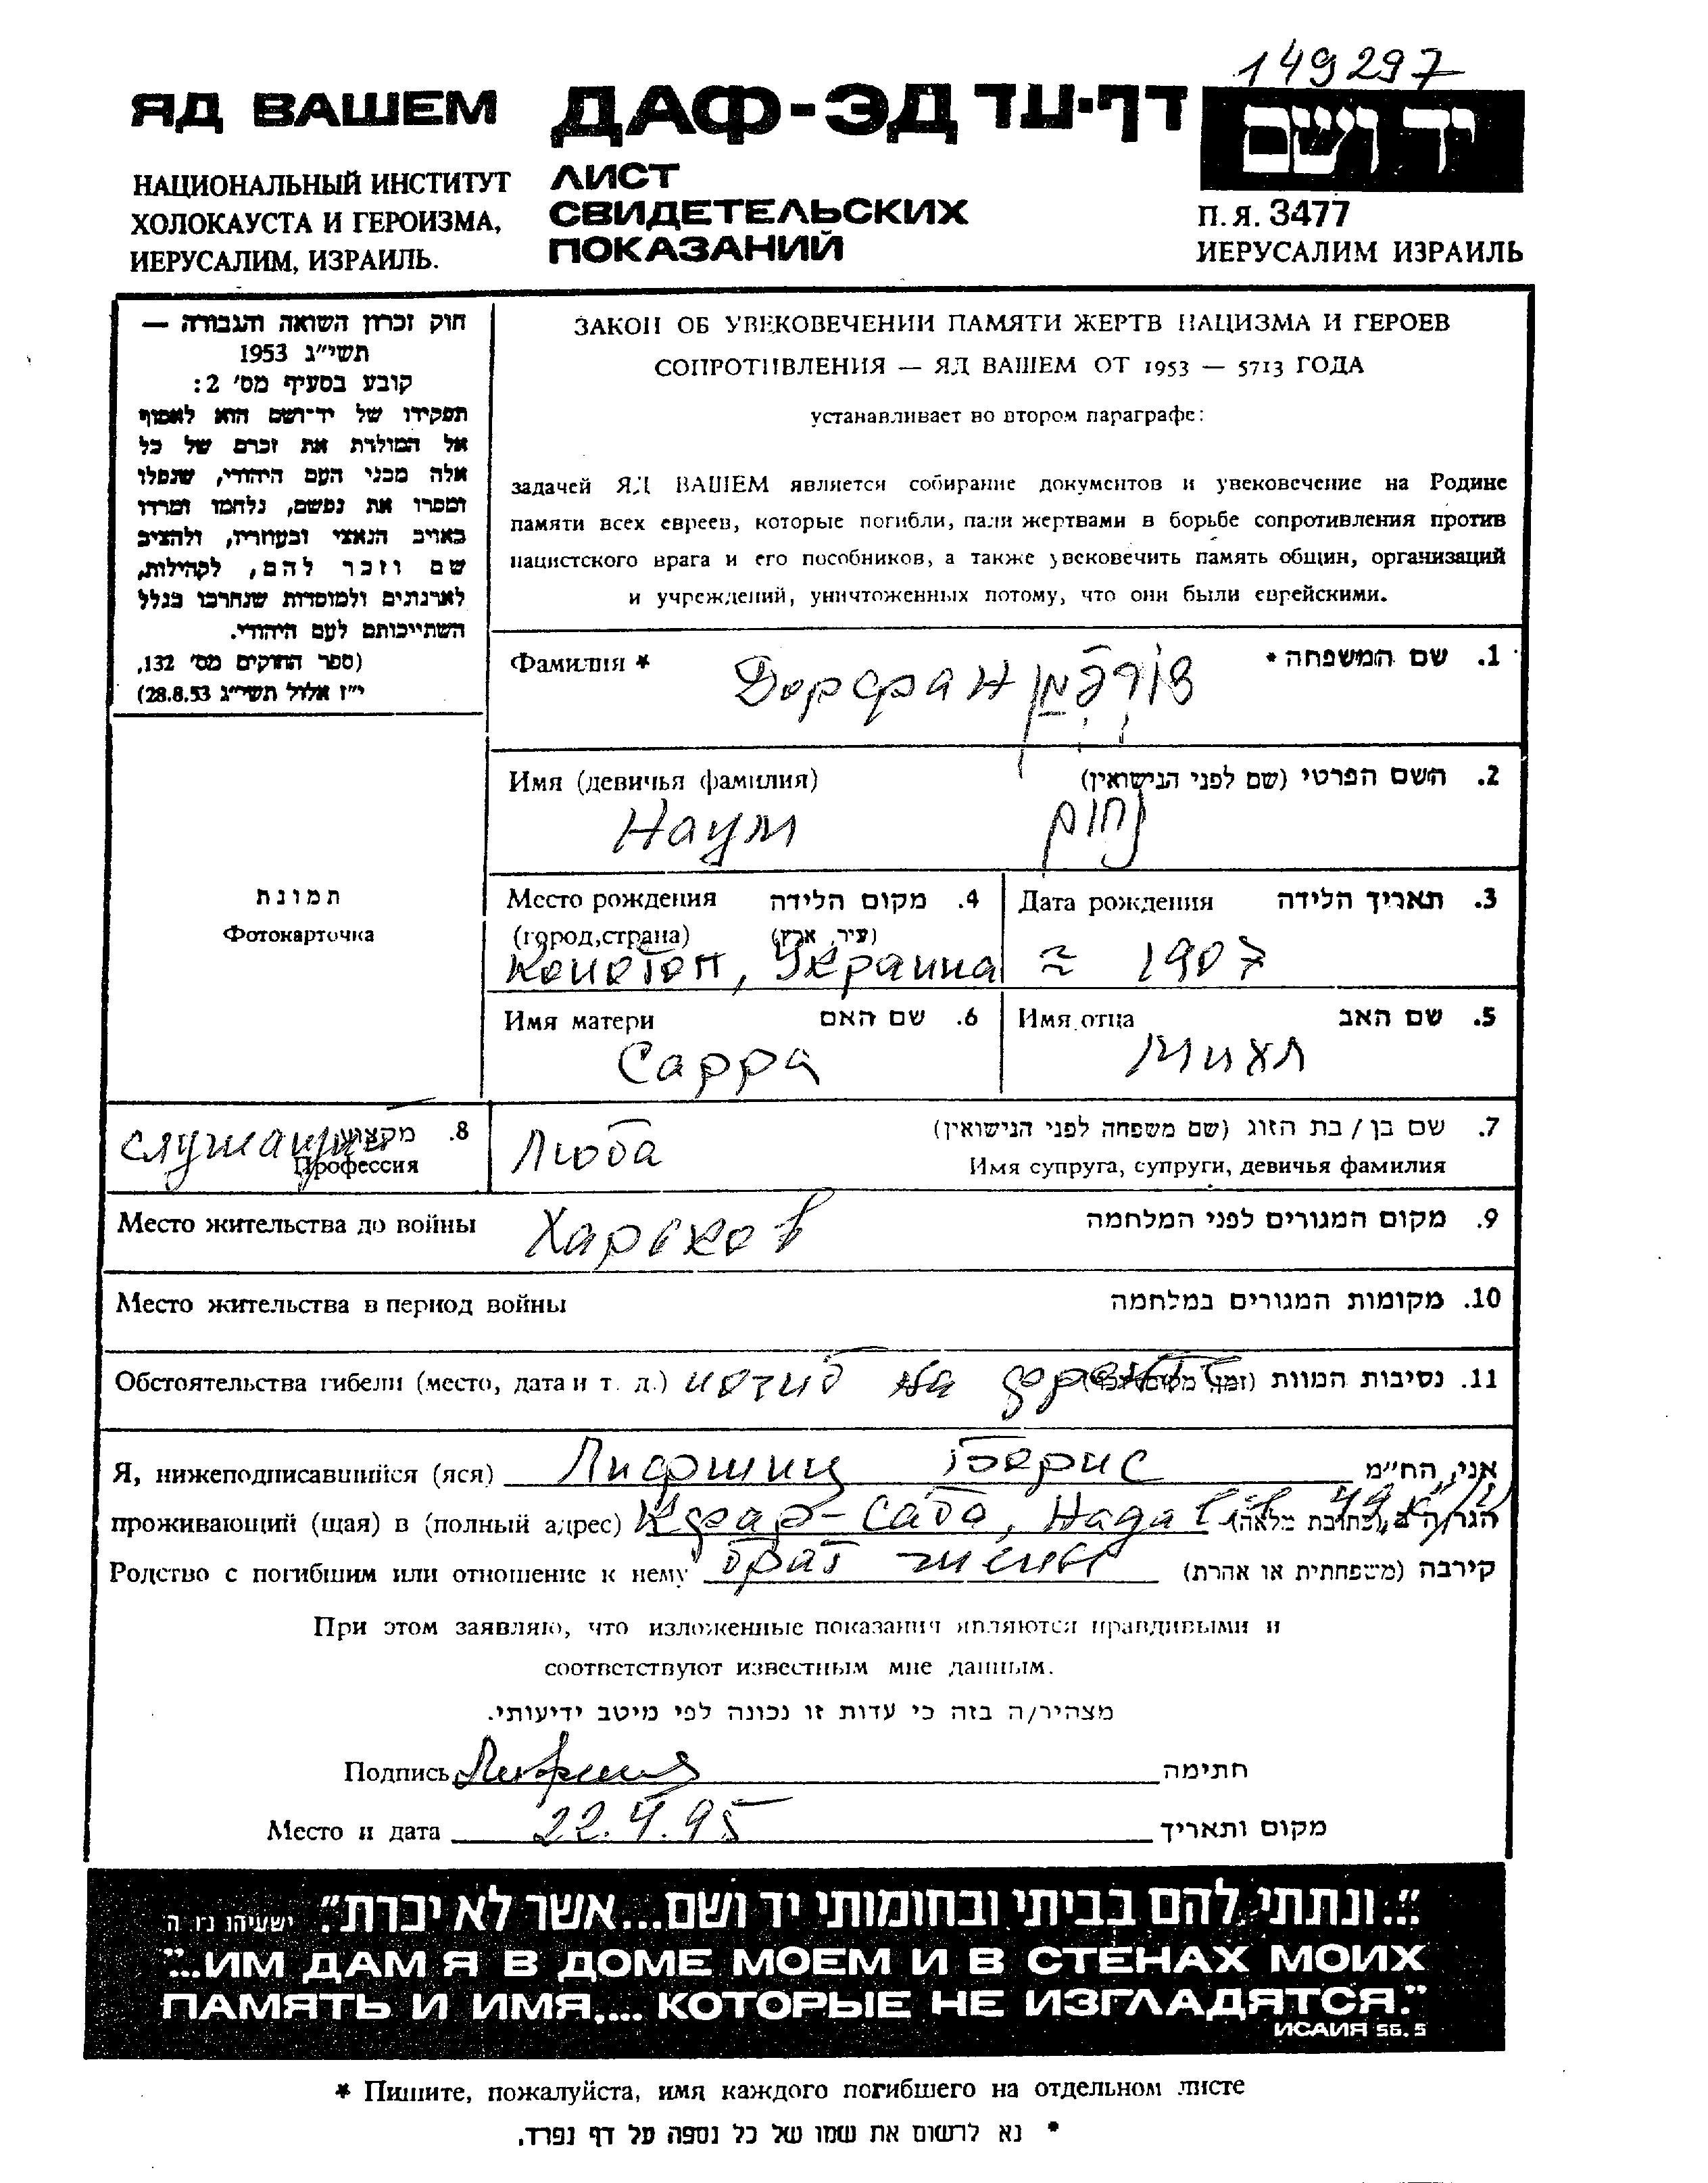 149297
ЯД ВАШЕМ ДАФ-ЭД דף-עד יד ושם
НАЦИОНАЛЬНЫЙ ИНСТИТУТ
ХОЛОКАУСТА И ГЕРОИЗМА,
ИЕРУСАЛИМ, ИЗРАИЛЬ.
ЛИСТ
СВИДЕТЕЛЬСКИХ
ПОКАЗАНИЙ
П.Я. 3477
ИЕРУСАЛИМ ИЗРАИЛЬ
חוק זכרון השואה והגבורה —
תשי״ג 1953
קובע בסעיף מס׳ 2:
תפקידו של יד־ושם הוא לאסוף
אל המולדת את זכרם של כל
אלה מבני העם היהודי, שנפלו
ומסרו את נפשם, נלחמו ומרדו
באויב הנאצי ובעוזריו, ולהציב
שם וזכר להם, לקהילות,
לארגונים ולמוסדות שנחרבו בגלל
השתייכותם לעם היהודי.
(ספר החוקים מס׳ 132,
י״ז אלול תשי״ג 28.8.53)
ЗАКОН ОБ УВЕКОВЕЧЕНИИ ПАМЯТИ ЖЕРТВ НАЦИЗМА И ГЕРОЕВ
СОПРОТИВЛЕНИЯ — ЯД ВАШЕМ ОТ 1953 — 5713 ГОДА
устанавливает во втором параграфе:
задачей ЯД ВАШЕМ является собирание документов и увековечение на Родине
памяти всех евреев, которые погибли, пали жертвами в борьбе сопротивления против
нацистского врага и его пособников, а также увековечить память общин, организаций
и учреждений, уничтоженных потому, что они были еврейскими.
Фамилия * Дорфман דורפמן 1. שם המשפחה *
Имя (девичья фамилия) 2. השם הפרטי (שם לפני הנישואין)
Наум נחום
תמונת
Фотокарточка
Место рождения 4. מקום הלידה
(город,страна) (עיר, ארץ)
Конотоп, Украина
Дата рождения 3. תאריך הלידה
≈ 1907
Имя матери 6. שם האם
Сарра
Имя отца 5. שם האב
Михл
8. מקצוע
служащий
Профессия
Люба 7. שם בן / בת הזוג (שם משפחה לפני הנישואין)
Имя супруга, супруги, девичья фамилия
Место жительства до войны Харьков 9. מקום המגורים לפני המלחמה
Место жительства в период войны 10. מקומות המגורים במלחמה
Обстоятельства гибели (место, дата и т. д.) погиб на фронте 11. נסיבות המוות
Я, нижеподписавшийся (яся) Лифшиц Борис אני, הח״מ
проживающий (щая) в (полный адрес) Кфар-Саба, Надав
Родство с погибшим или отношение к нему брат жены קירבה (משפחתית או אחרת)
При этом заявляю, что изложенные показания являются правдивыми и
соответствуют известным мне данным.
מצהיר/ה בזה כי עדות זו נכונה לפי מיטב ידיעותי.
Подпись Лифшиц חתימה
Место и дата 22.4.95 מקום ותאריך
״...ונתתי להם בביתי ובחומותי יד ושם...אשר לא יכרת״. ישעיהו נו ה
"...ИМ ДАМ Я В ДОМЕ МОЕМ И В СТЕНАХ МОИХ
ПАМЯТЬ И ИМЯ.... КОТОРЫЕ НЕ ИЗГЛАДЯТСЯ."
ИСАИЯ 56. 5
* Пишите, пожалуйста, имя каждого погибшего на отдельном листе
* נא לרשום את שמו של כל נספה על דף נפרד.